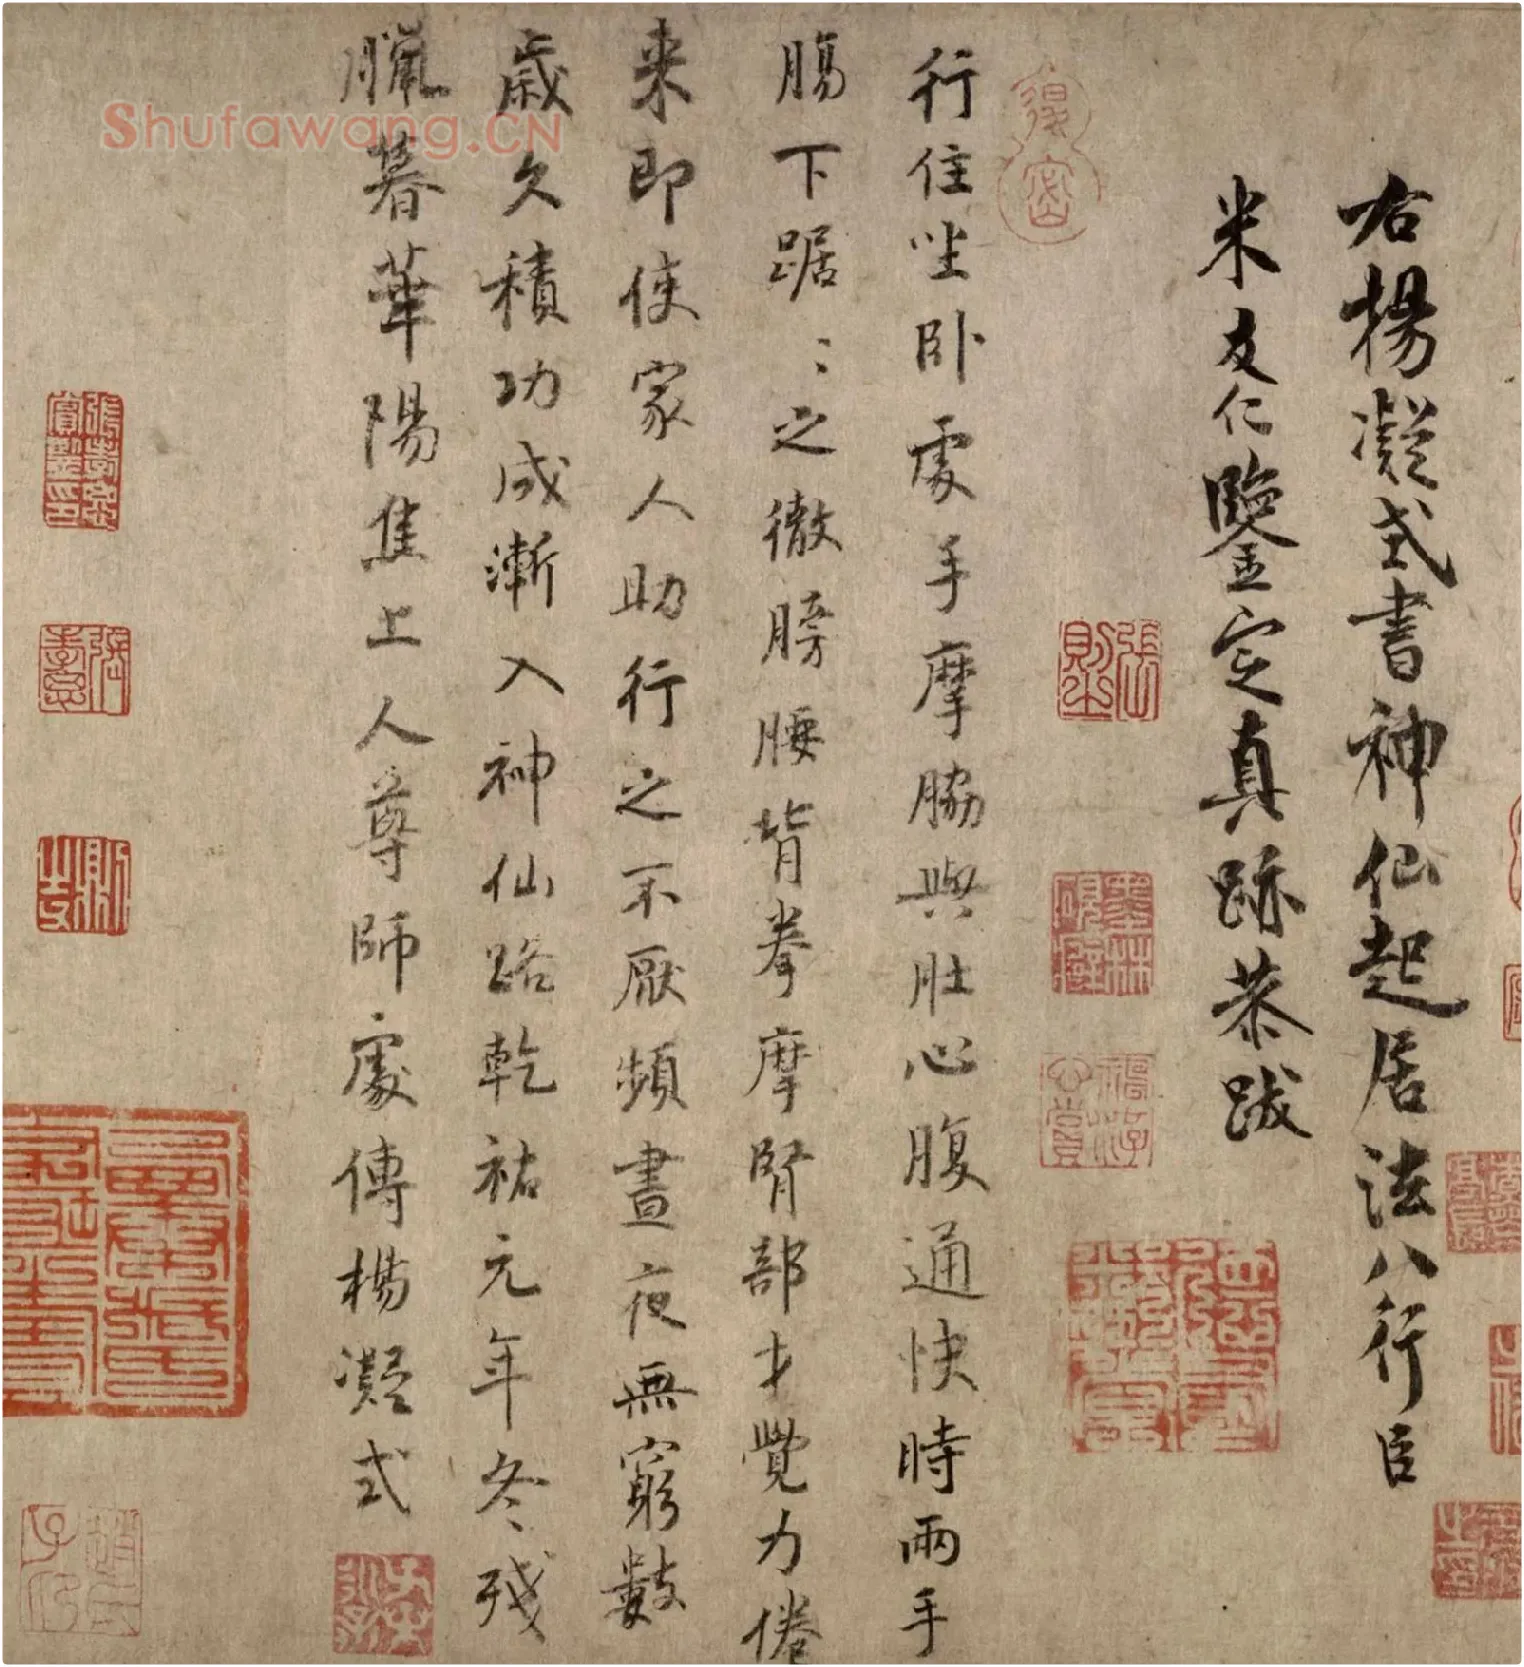 右楊凝式書神仙起居法八行臣
米友仁鑒定真跡恭跋
行住坐卧處手摩脇與肚心腹通快時兩手
腸下踞〻之徹膀腰背拳摩腎部才覺力倦
来即使家人助行之不厭頻晝夜無窮數
歲久積功成漸入神仙路乾祐元年冬殘
臘暮華陽焦上人尊師處傳楊凝式
Shufawang.CN